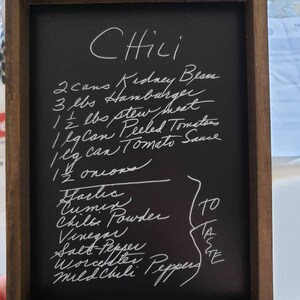 CHiLi
2 cans Kidney Beans
3 lbs Hamburger
1 1/2 lbs stew meat
1 lg Can Peeled Tomatoes
1 lg can Tomato Sauce
1 1/2 onions
Garlic
Cumin
Chili Powder
Vinegar
Salt Pepper
Worcester
Mild Chili Peppers
TO TASTE